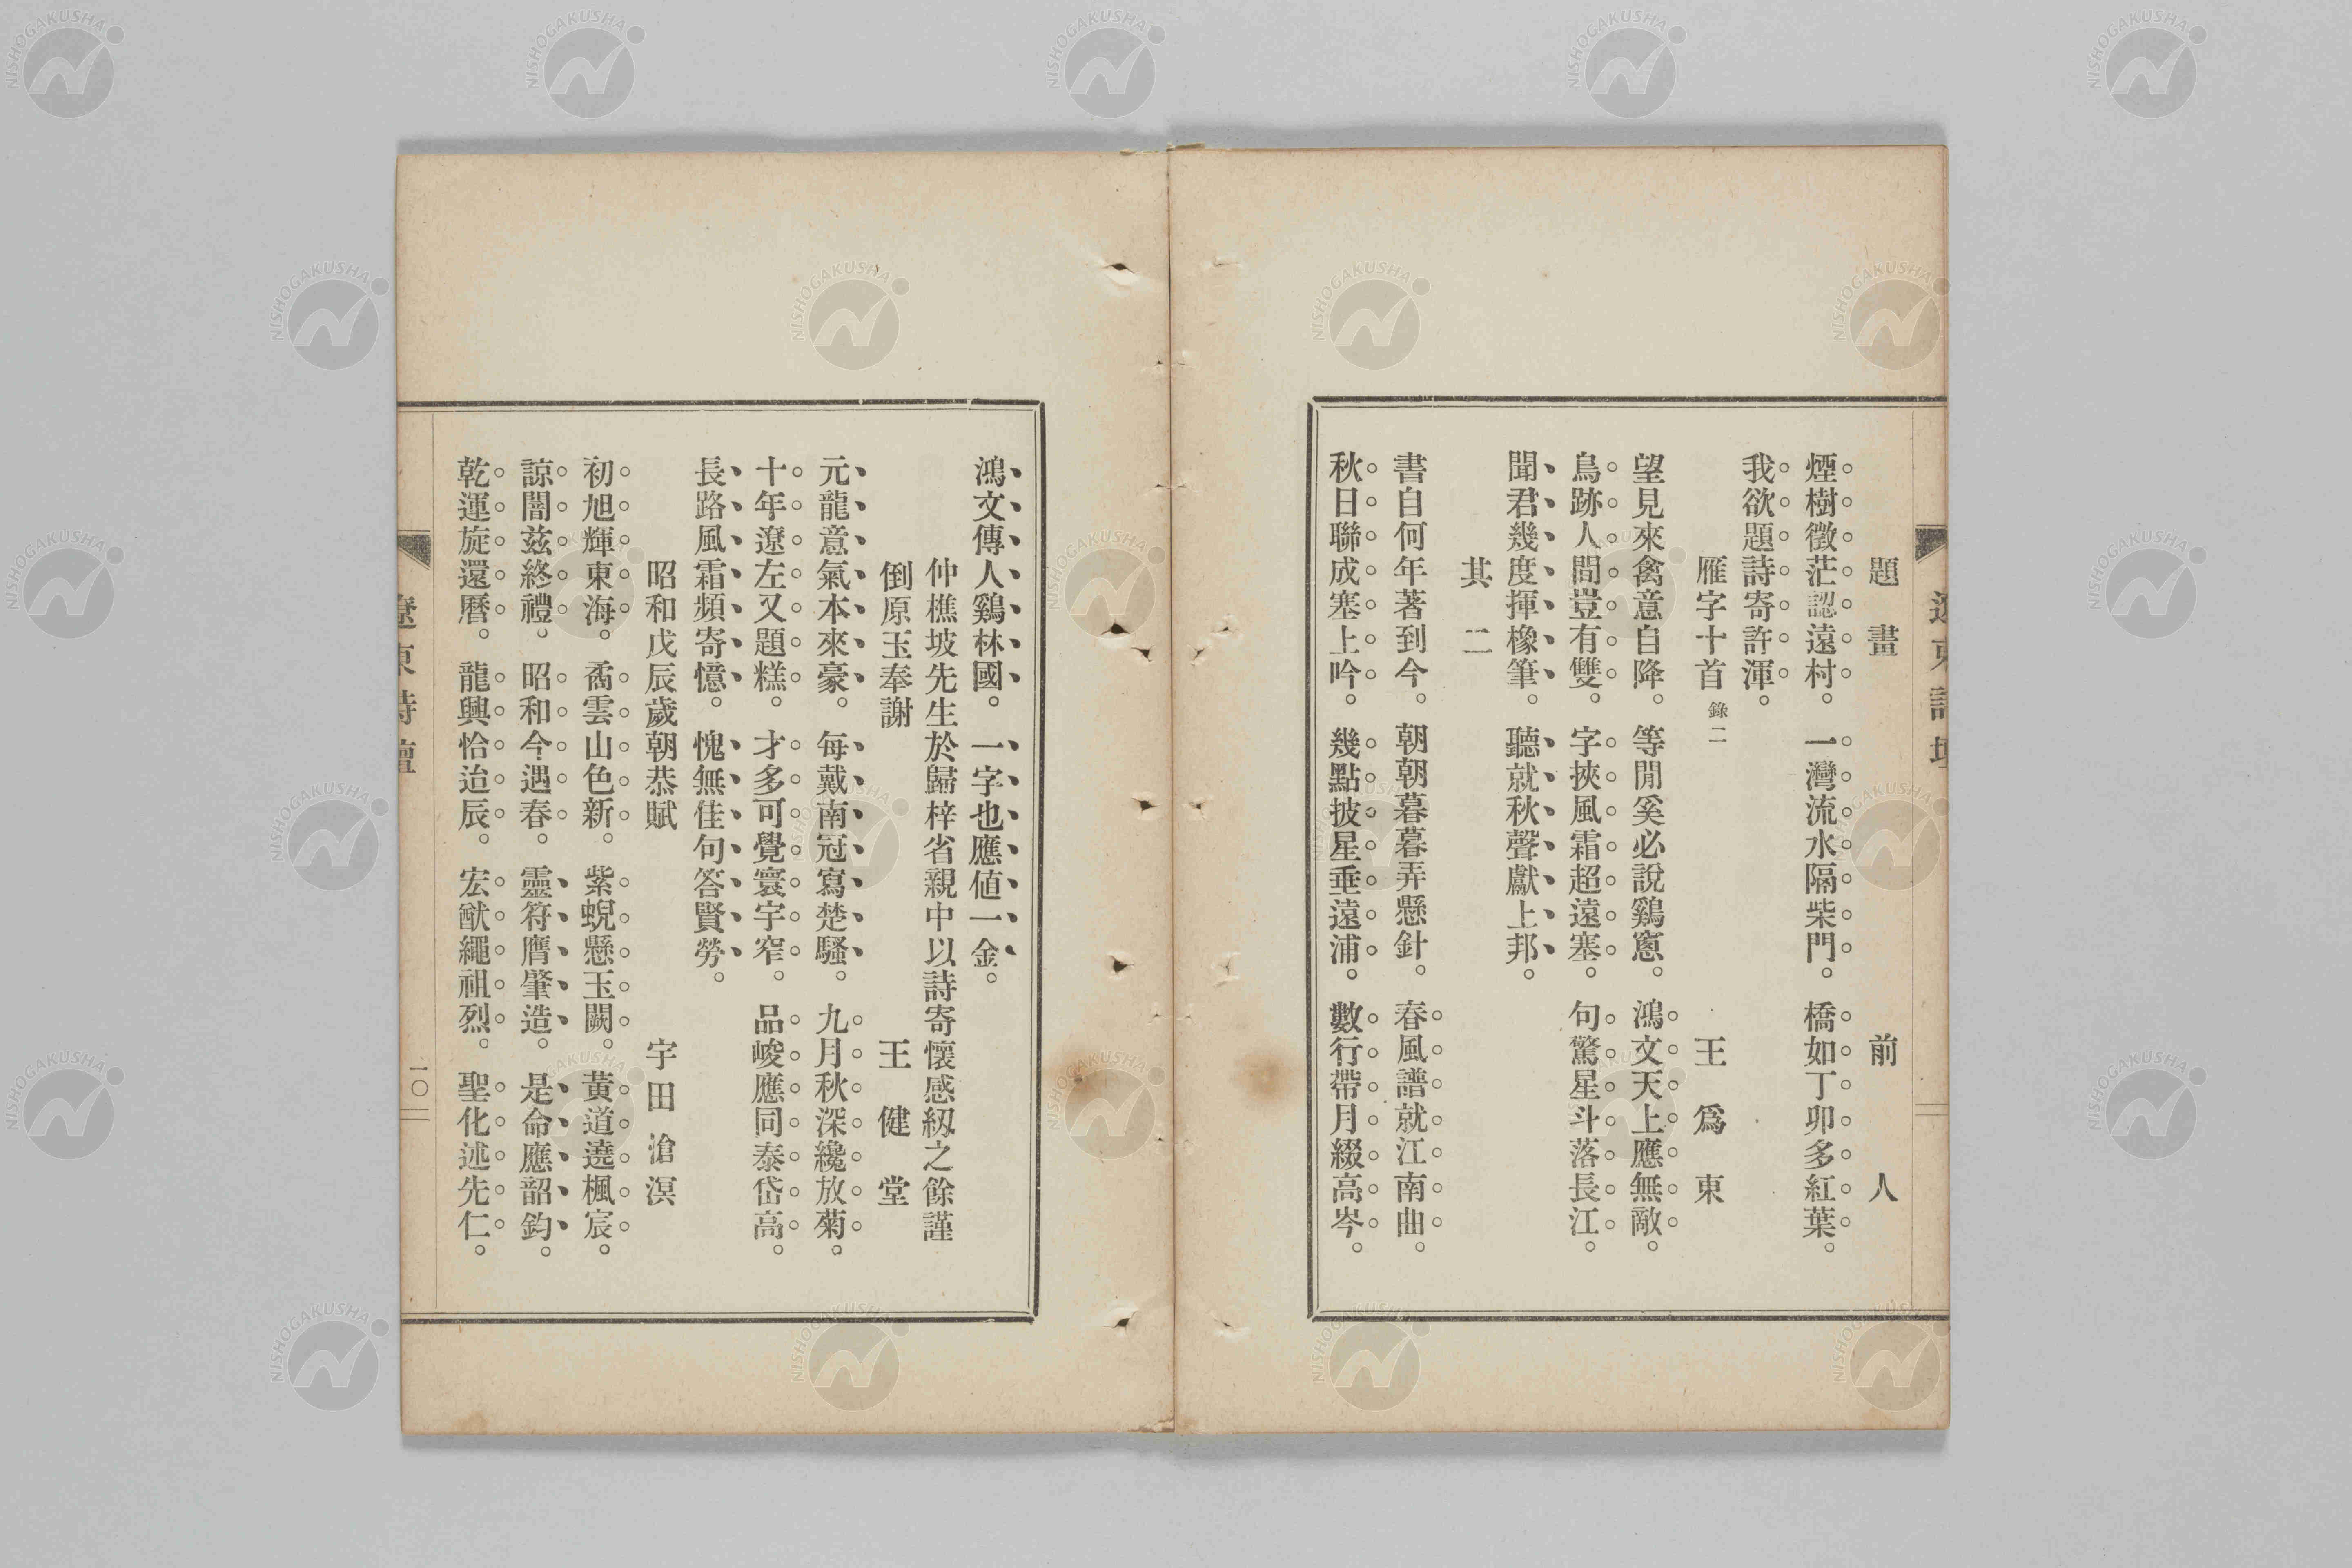 題畫　前人
煙樹微茫認遠村。一灣流水隔柴門。橋如丁卯多紅葉。
我欲題詩寄許渾。
雁字十首 錄二　王爲東
望見來禽意自降。等閒奚必說鷄窻。鴻文天上應無敵。
鳥跡人間豈有雙。字挾風霜超遠塞。句驚星斗落長江。
聞君幾度揮椽筆。聽就秋聲獻上邦。
其二
書自何年著到今。朝朝暮暮弄懸針。春風譜就江南曲。
秋日聯成塞上吟。幾點披星垂遠浦。數行帶月綴高岑。
鴻文傳人鷄林國。一字也應値一金。
仲樵坡先生於歸梓省親中以詩寄懷感紉之餘謹
倒原玉奉謝　王健堂
元龍意氣本來豪。每戴南冠寫楚騷。九月秋深纔放菊。
十年遼左又題糕。才多可覺寰宇窄。品峻應同泰岱高。
長路風霜頻寄憶。愧無佳句答賢勞。
昭和戊辰歲朝恭賦　宇田滄溟
初旭輝東海。矞雲山色新。紫蜺懸玉闕。黃道遶楓宸。
諒闇茲終禮。昭和今遇春。靈符膺肇造。是命應韶鈞。
乾運旋還曆。龍興恰迨辰。宏猷繩祖烈。聖化述先仁。
遼東詩壇
一〇
NISHOGAKUSHA